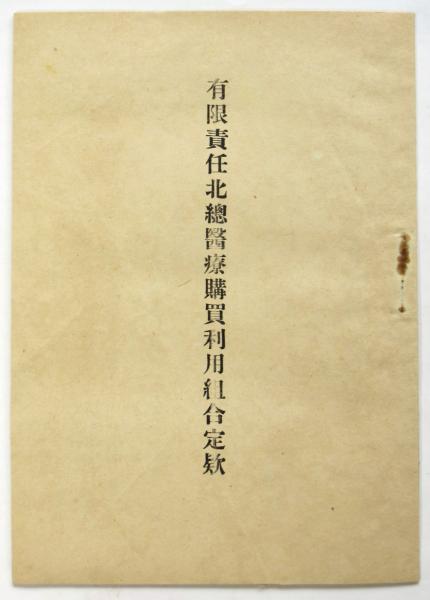 有限責任北總醫療購買利用組合定欵